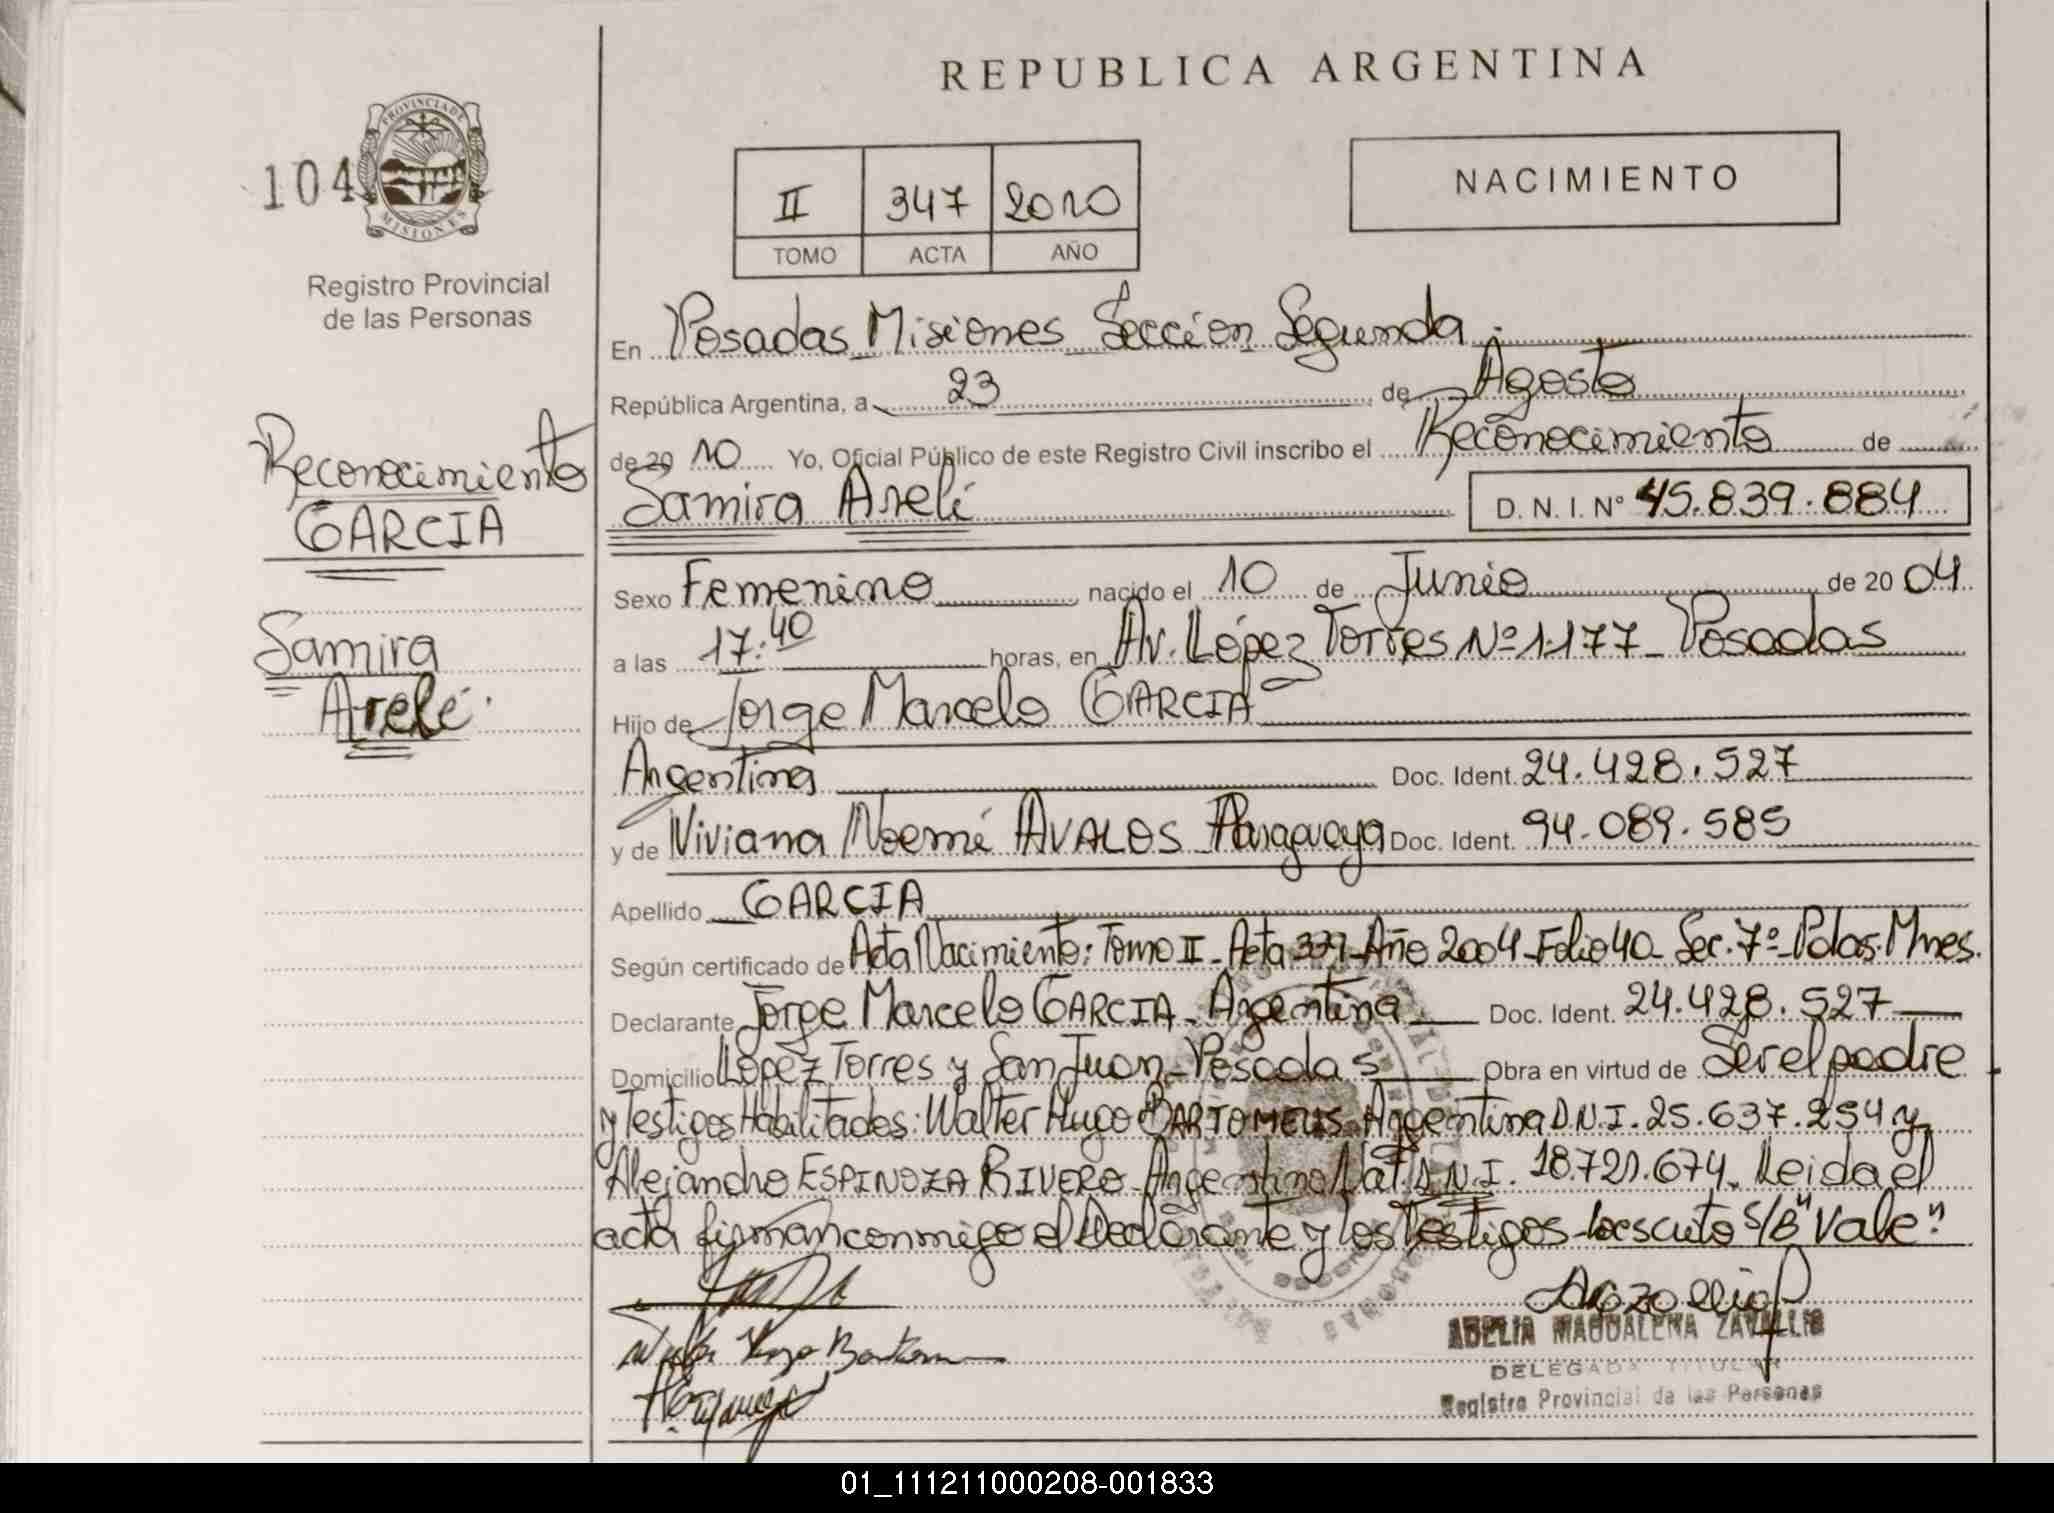 REPUBLICA ARGENTINA
NACIMIENTO
104
PROVINCIA DE
MISIONES
Registro Provincial
de las Personas
II 347 2010
TOMO ACTA AÑO
En Posadas Misiones Sección Segunda
República Argentina, a 23 de Agosto
de 20 10 Yo, Oficial Público de este Registro Civil inscribo el Reconocimiento de
Samira Arelí D. N. I. Nº 45.839.884
Reconocimiento
GARCIA
Samira
Arelí
Sexo Femenino nacido el 10 de Junio de 20 04
a las 17:40 horas, en Av. López Torres Nº 1177 - Posadas
Hijo de Jorge Marcelo GARCIA
Argentina Doc. Ident. 24.428.527
y de Viviana Noemí AVALOS Paraguaya Doc. Ident. 94.089.585
Apellido GARCIA
Según certificado de Acta Nacimiento: Tomo II - Acta 377 - Año 2004 - Folio 40 - Sec. 7º - Pdas. Mnes.
Declarante Jorge Marcelo GARCIA - Argentina Doc. Ident. 24.428.527
Domicilio López Torres y San Juan - Posadas Obra en virtud de Ser el padre
y Testigos Habilitados: Walter Hugo BARTOMEUS Argentina D.N.I. 25.637.254 y
Alejandro ESPINOZA RIVERO - Argentino Nat. D.N.I. 18.721.674. Leida el
acta firman conmigo el Declarante y los Testigos - S/B "Vale".
ADELIA MAGDALENA ZAVALLIO
DELEGADA TITULAR
Registro Provincial de las Personas
01_111211000208-001833